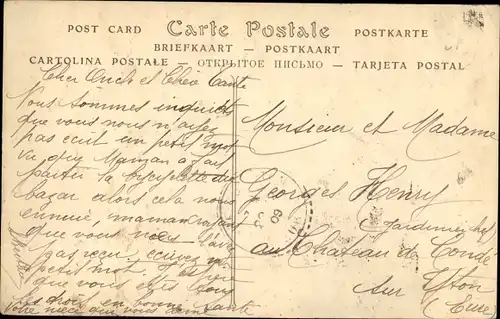 POST CARD Carte Postale POSTKARTE
BRIEFKAART — POSTKAART
CARTOLINA POSTALE — ОТКРЫТОЕ ПИСЬМО — TARJETA POSTAL
Cher Oncle et Chère Tante
Nous sommes inquiets
que vous nous n'ayez
pas écrit un petit mot
vu que Maman a fait
partir la bicyclette du
bazar alors cela nous
ennuie, maman
que vous nous l'avez
pas reçu. écrivez un
petit mot.
que vous êtes tous
en bonne Santé
Votre nièce qui vous aime
Monsieur et Madame
Georges Henry
Jardinier chef
au Château de Condé
sur Iton
(Eure)
09